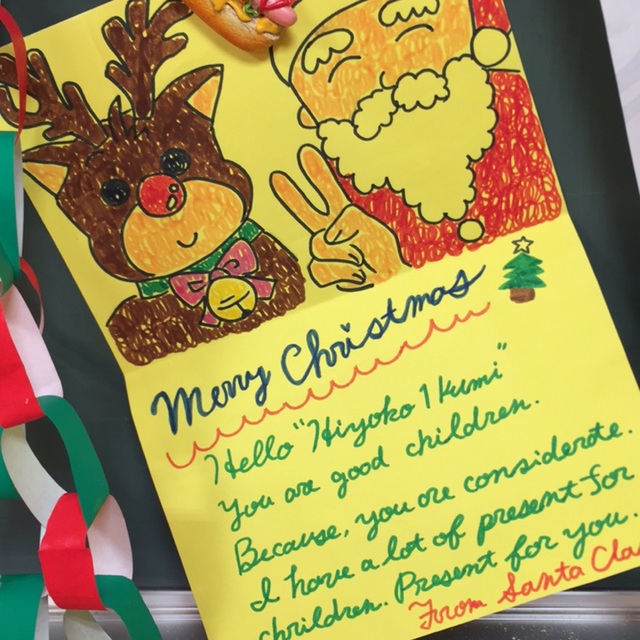 Merry Christmas
Hello "Hiyoko Ikumi"
You are good children.
Because, you are considerate.
I have a lot of present for
chrildren. Present for you.
From Santa Cla